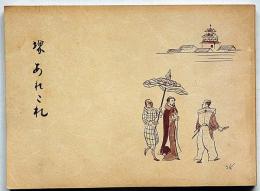 堺あれこれ